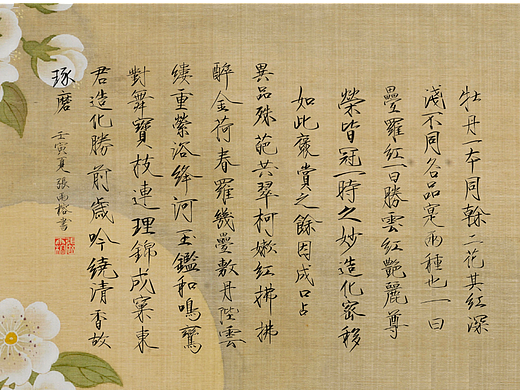 牡丹一本同榦二花其紅深
淺不同名品寔兩種也一曰
疊羅紅一曰勝雲紅艷麗尊
榮皆冠一時之妙造化密移
如此褒賞之餘因成口占
異品殊葩共翠柯嫩紅拂拂
醉金荷春羅幾疊敷丹陛雲
縷重縈浴絳河玉鑑和鳴鸞
對舞寶枝連理錦成窠東
君造化勝前歲吟繞清香故
琢磨 壬寅夏張雨榕書